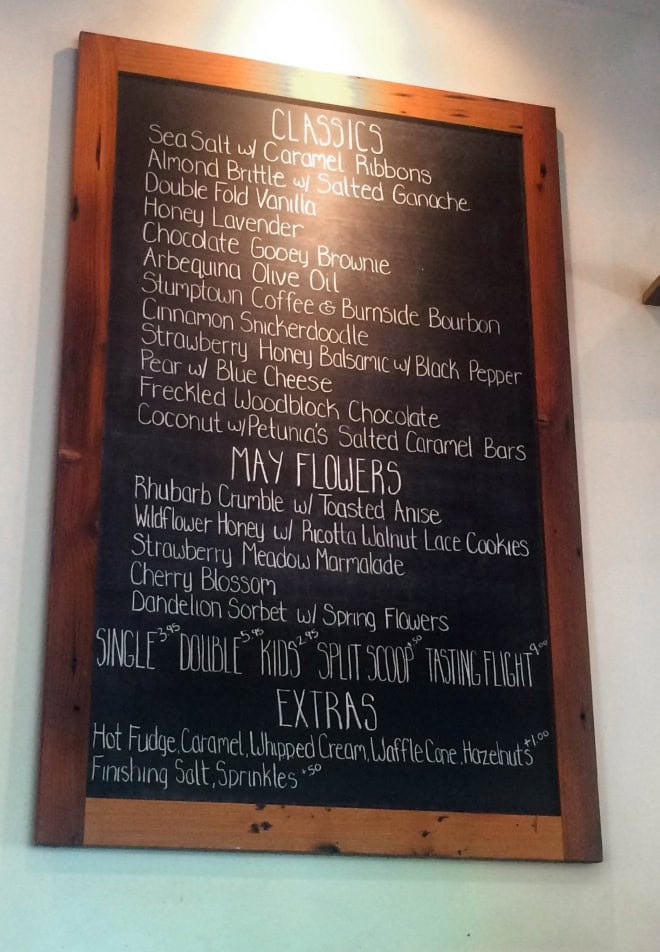 CLASSICS
Sea Salt w/ Caramel Ribbons
Almond Brittle w/ Salted Ganache
Double Fold Vanilla
Honey Lavender
Chocolate Gooey Brownie
Arbequina Olive Oil
Stumptown Coffee & Burnside Bourbon
Cinnamon Snickerdoodle
Strawberry Honey Balsamic w/ Black Pepper
Pear w/ Blue Cheese
Freckled Woodblock Chocolate
Coconut w/ Petunia's Salted Caramel Bars
MAY FLOWERS
Rhubarb Crumble w/ Toasted Anise
Wildflower Honey w/ Ricotta Walnut Lace Cookies
Strawberry Meadow Marmalade
Cherry Blossom
Dandelion Sorbet w/ Spring Flowers
SINGLE 3.95 DOUBLE 5.95 KIDS 2.95 SPLIT SCOOP +.50 TASTING FLIGHT 9.00
EXTRAS
Hot Fudge, Caramel, Whipped Cream, Waffle Cone, Hazelnuts +1.00
Finishing Salt, Sprinkles +.50